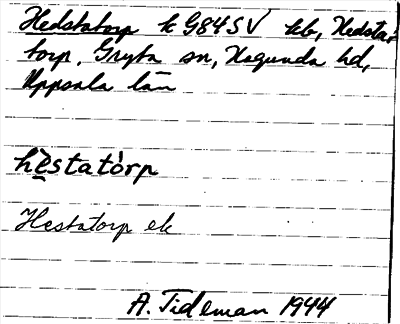 Hedstatorp k G84SV kb, Hedsta-
torp, Gryta sn, Hagunda hd,
Uppsala län
hèstatòrp
Hestatorp ek
A. Tideman 1944